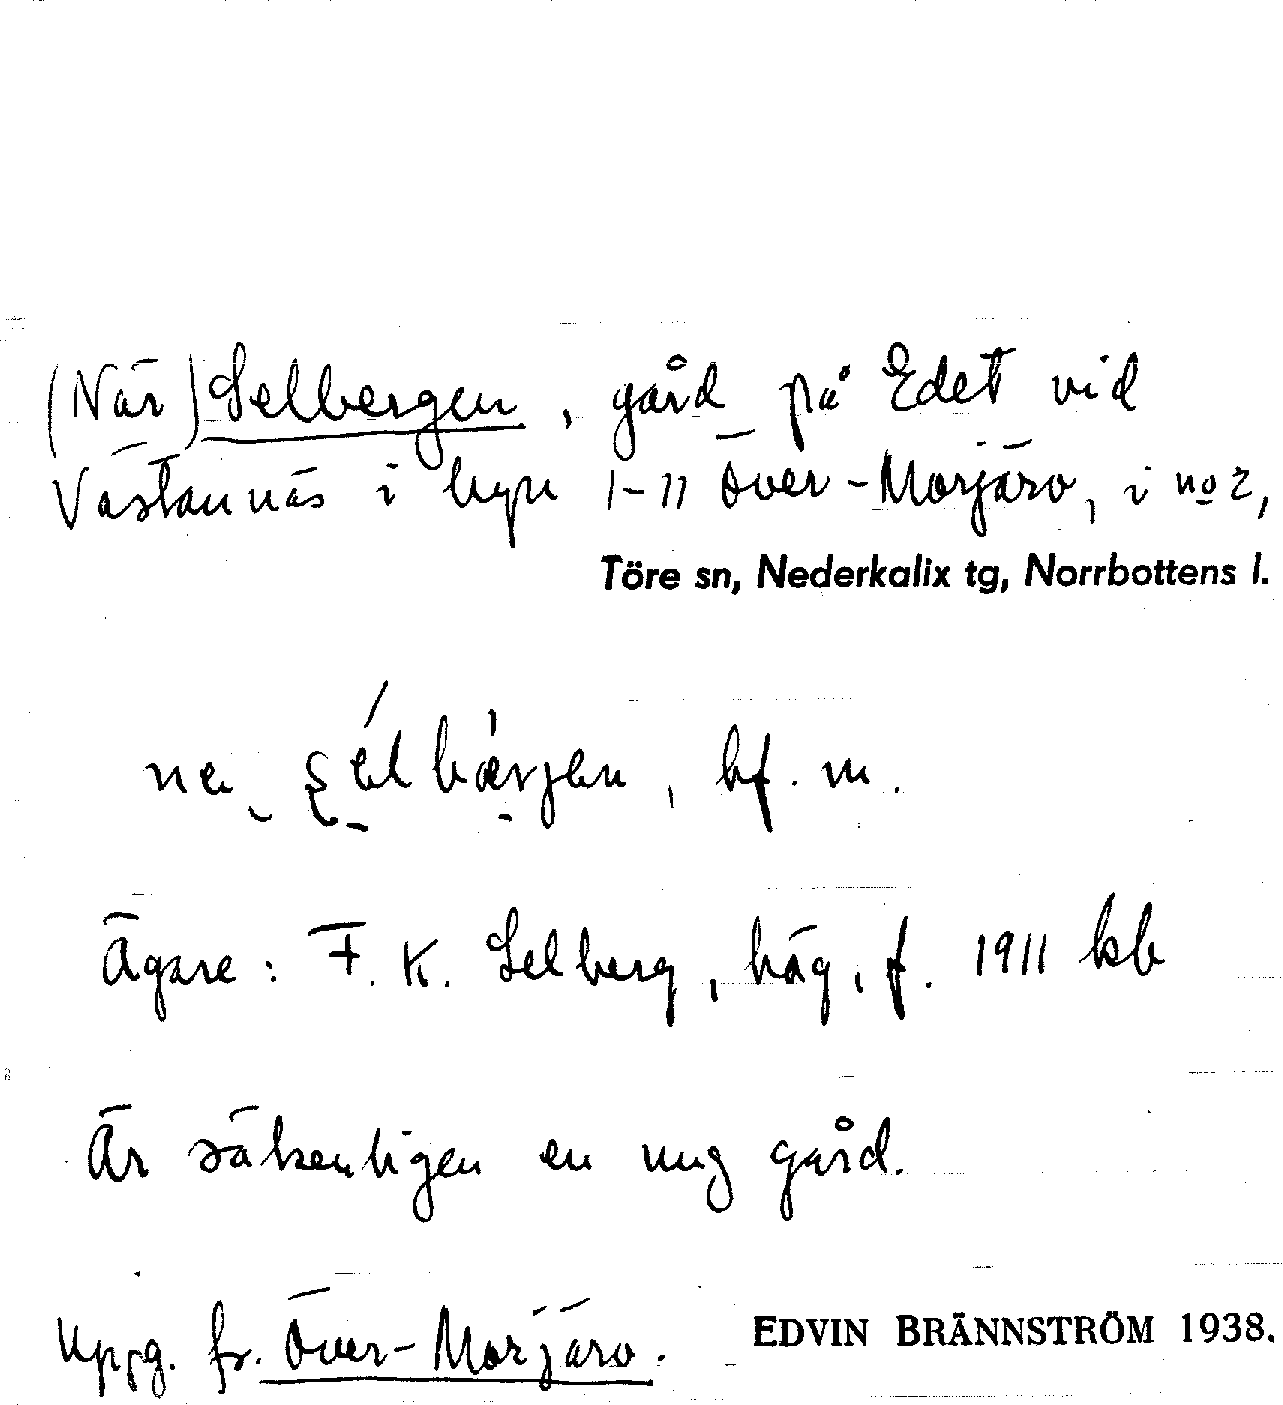 (När) Selbergen, gård på Edet vid
Västannäs i byn 1-11 Över-Morjärv, i no 2,
Töre sn, Nederkalix tg, Norrbottens l.
bf. m.
Ägare: F. K. Selberg, häg, f. 1911 kb
Är säkenligen en nug gård.
Uppg. fr. Över-Morjärv.
EDVIN BRÄNNSTRÖM 1938.